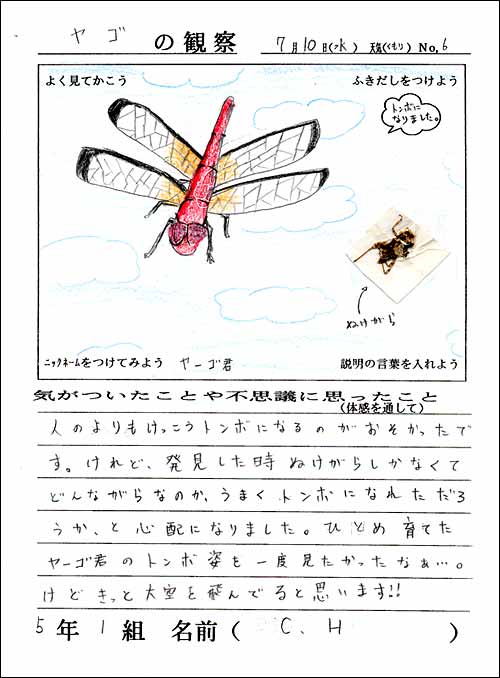 ヤゴの観察 7月10日(水) 天気(くもり) No,6
よく見てかこう ふきだしをつけよう
トンボに
なりました。
ぬけがら
ニックネームをつけてみよう ヤーゴ君 説明の言葉を入れよう
気がついたことや不思議に思ったこと
(体感を通して)
人のよりもけっこうトンボになるのがおそかったで
す。けれど、発見した時ぬけがらしかなくて
どんながらなのか、うまくトンボになれただろ
うか、と心配になりました。ひとめ育てた
ヤーゴ君のトンボ姿も一度見たかったなぁ…。
けどきっと大空を飛んでると思います!!
5年1組 名前( C、H )